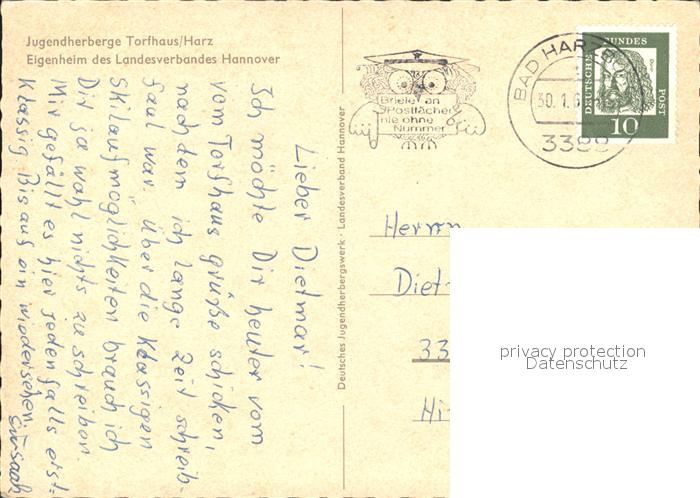 Jugendherberge Torfhaus/Harz
Eigenheim des Landesverbandes Hannover
Lieber Dietmar!
Ich möchte Dir heute vom
vom Torfhaus grüße schicken,
nach dem ich lange Zeit schreib-
faul war. über die Klassigen
Skilaufmöglichkeiten brauch ich
Dir ja wohl nichts zu schreiben.
Mir gefällt es hier jedenfalls erst-
klassig. Bis auf ein wiedersehen.
Deutsches Jugendherbergswerk · Landesverband Hannover
Briefe an
Postfächer
nie ohne
Nummer
BAD HARZB
30.1.6
3388
DEUTSCHE
BUNDES
POST
10
Herrn
Diet
33
Hi
privacy protection
Datenschutz